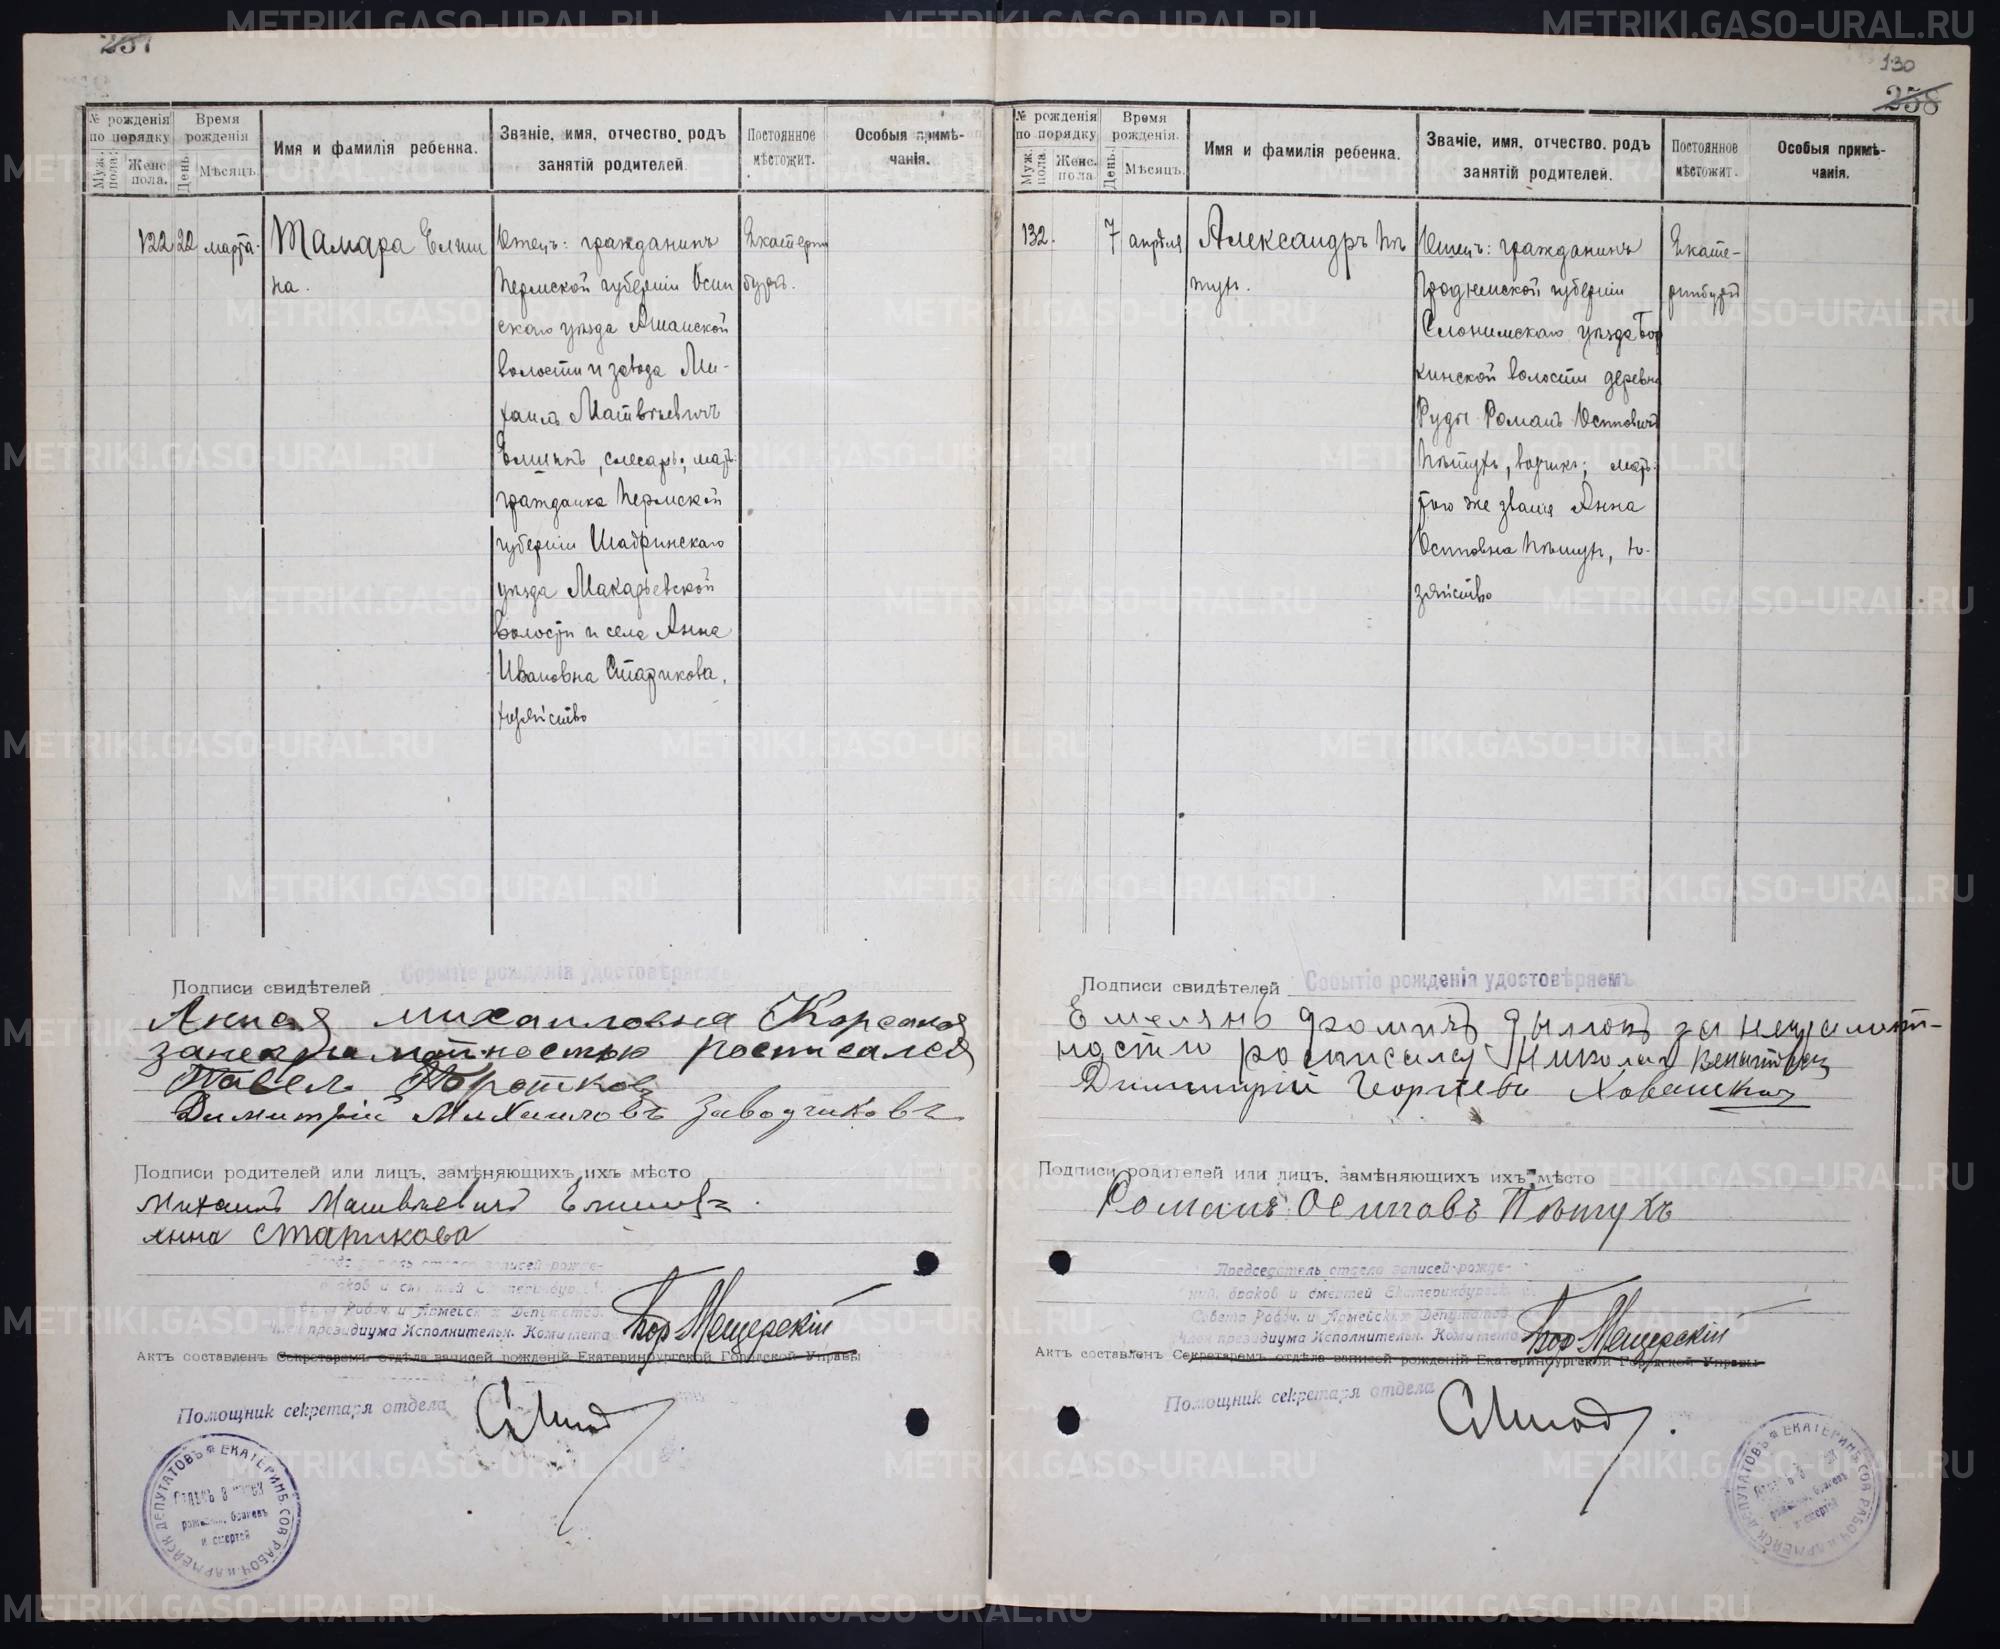 257
№ рожденія по порядку
Муж. пола.
Женс. пола.
Время рожденія
День.
Мѣсяцъ.
Имя и фамилія ребенка.
Званіе, имя, отчество, родъ
занятій родителей.
Постоянное
мѣстожит.
Особыя примѣ-
чанія.
122 22 марта.
Тамара Елши
на.
Отецъ: гражданинъ
Пермской губерніи Осин
скаго уѣзда Ашапской
волости и завода Ми-
хаилъ Матвѣевичъ
Елшинъ, слесарь; мать:
гражданка Пермской
губерніи Шадринскаго
уѣзда Макарьевской
волости и села Анна
Ивановна Старикова,
хозяйство
Екатерин
бургъ.
Подписи свидѣтелей
Событіе рожденія удостовѣряемъ
Михаиловна
росписался
Павел Коротков
Димитрій Михаиловъ Заводчиковъ
Подписи родителей или лицъ, замѣняющихъ ихъ мѣсто
Михаилъ Матвѣевичъ Елшинъ.
Анна Старикова
Совѣта Рабоч. и Армейских Депутатов.
Член президиума Исполнительн. Комитета
Бор Мещерскій
Актъ составленъ Секретаремъ отдѣла записей рожденій Екатеринбургской Городской Управы
Помощник секретаря отдела
ЕКАТЕРИНБ. СОВ. РАБОЧ. И АРМЕЙСК. ДЕПУТАТОВЪ
рожденій, браковъ
и смертей
130
258
№ рожденія по порядку
Муж. пола.
Женс. пола.
Время рожденія.
День.
Мѣсяцъ.
Имя и фамилія ребенка.
Званіе, имя, отчество, родъ
занятій родителей.
Постоянное
мѣстожит.
Особыя примѣ-
чанія.
132. 7 апрѣля
Александръ Пѣ
тух.
Отецъ: гражданинъ
Гродненской губерніи
Слонимскаго уѣзда
волости деревни
Руды Романъ Осиповичъ
Пѣтухъ, возчикъ; мать:
того же званія Анна
Осиповна Пѣтух, хо-
зяйство
Екате-
ринбург
Подписи свидѣтелей
Событіе рожденія удостовѣряемъ
Емелянъ за неграмот-
ностію росписался Николай
Димитрій Георгіевъ
Подписи родителей или лицъ, замѣняющихъ ихъ мѣсто
Романъ Осиповъ Пѣтухъ
Председатель отдела записей рожде-
ний, браков и смертей Екатеринбургск.
Совета Рабоч. и Армейских Депутатов
Член президиума Исполнительн. Комитета
Бор Мещерскій
Актъ составленъ Секретаремъ отдѣла записей рожденій Екатеринбургской Городской Управы
Помощник секретаря отдела
ЕКАТЕРИНБ. СОВ. РАБОЧ. И АРМЕЙСК. ДЕПУТАТОВЪ
рожденій, браковъ
и смертей
METRIKI.GASO-URAL.RU